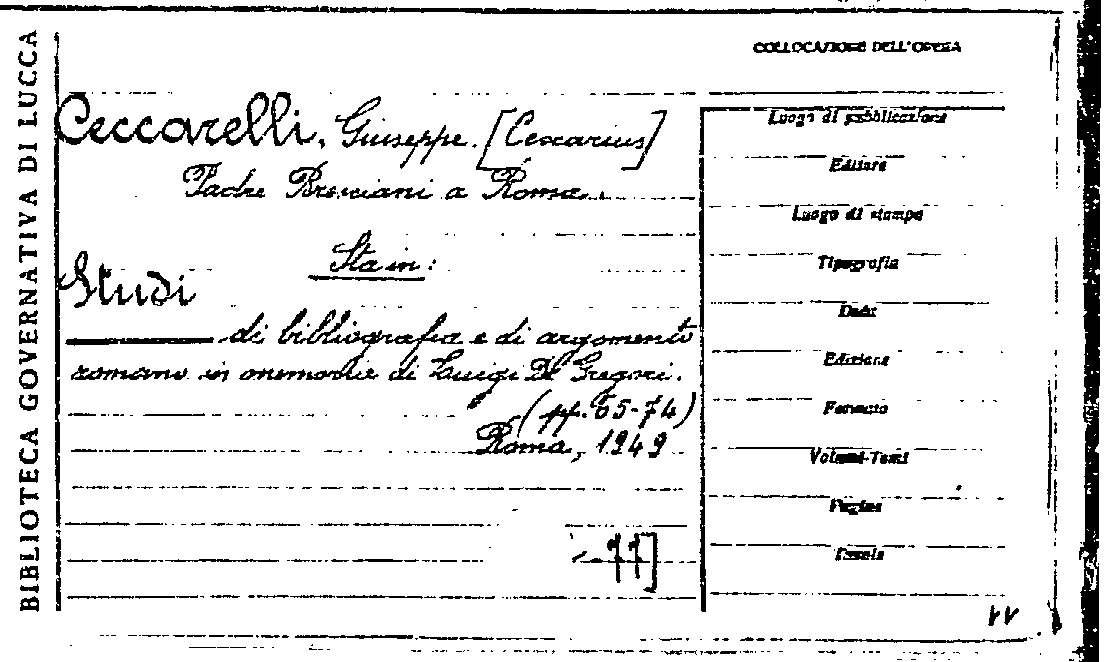 BIBLIOTECA GOVERNATIVA DI LUCCA
COLLOCAZIONE DELL'OPERA
Ceccarelli, Giuseppe. [Ceccarius]
Padre Bresciani a Roma.
Sta in:
Studi
di bibliografia e di argomento
romano in memoria di Luigi De Gregori.
(pp. 65-74)
Roma, 1949
Luogo di pubblicazione
Editore
Luogo di stampa
Tipografia
Data
Edizione
Formato
Volumi-Tomi
Pagine